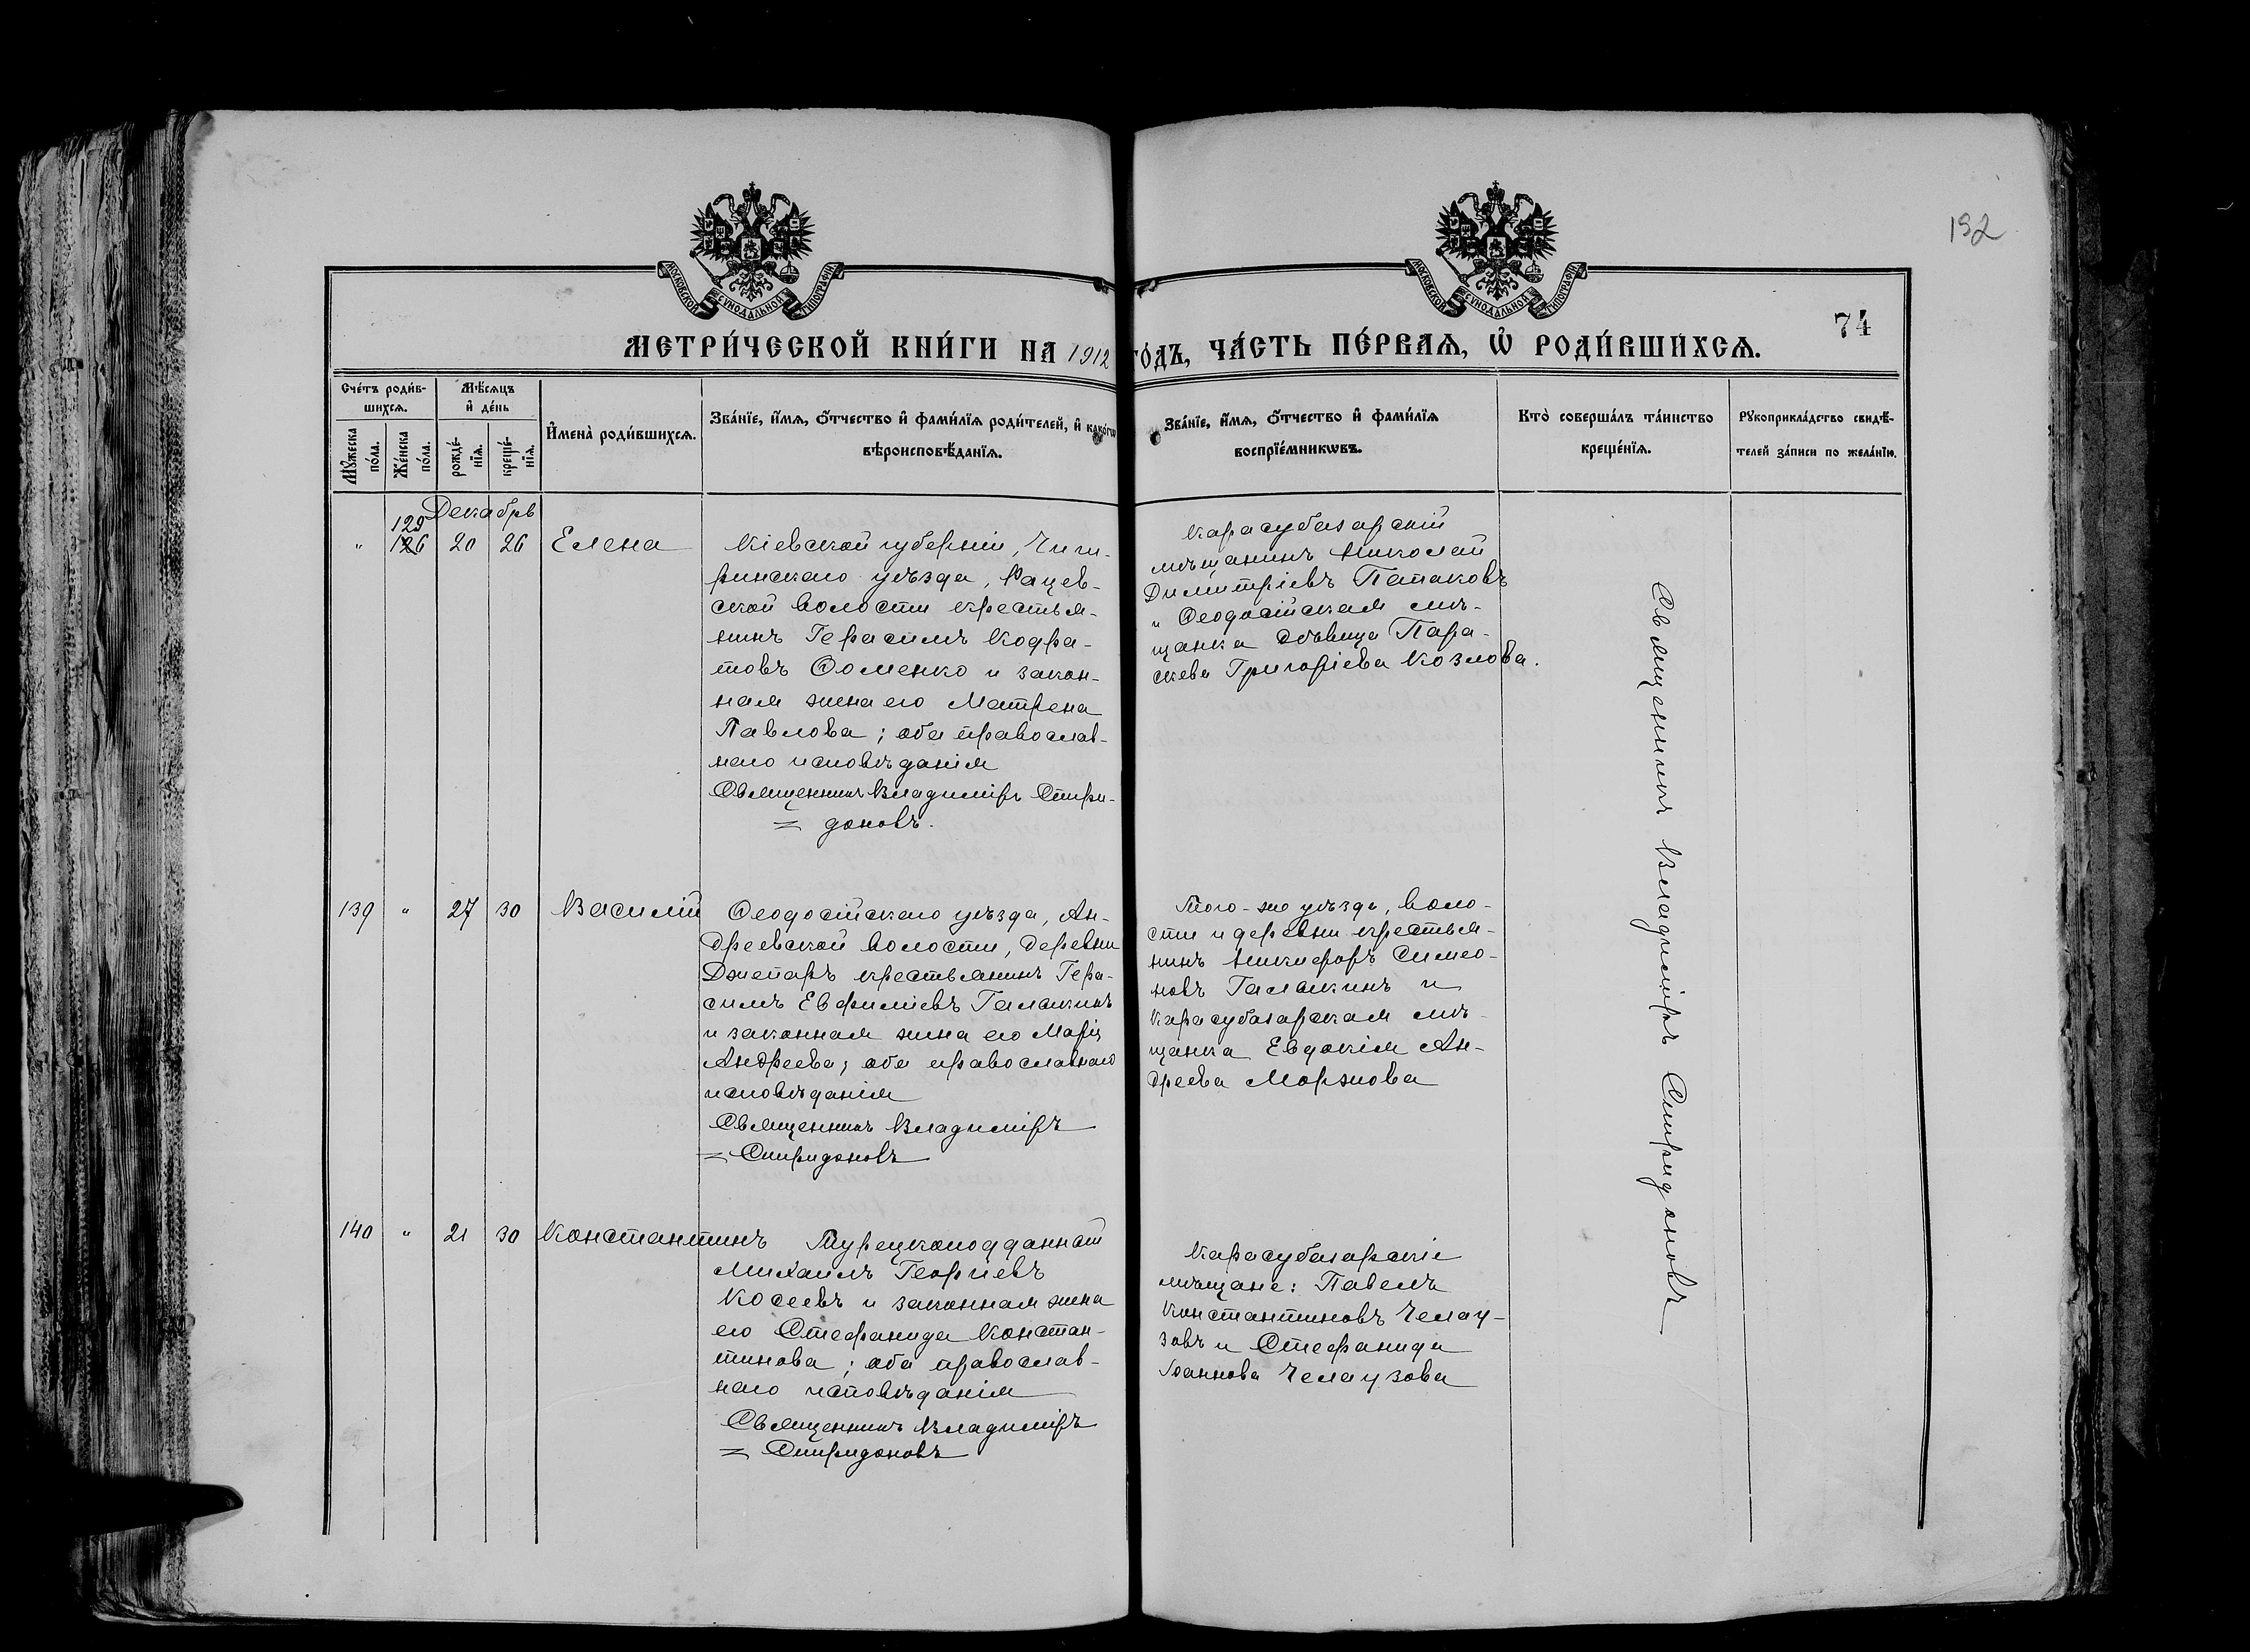 192
МОСКОВСКОЙ СѴНОДАЛЬНОЙ ТИПОГРАФІИ
МОСКОВСКОЙ СѴНОДАЛЬНОЙ ТИПОГРАФІИ
74
МЕТРИ́ЧЕСКОЙ КНИ́ГИ НА 1912 ГО́ДЪ, ЧА́СТЬ ПЕ́РВАѦ, Ѡ҆ РОДИ́ВШИХСѦ.
Сче́тъ роди́в-
шихсѧ.
Мѣ́сѧцъ
и҆ де́нь
Мꙋ́жеска
по́ла.
Же́нска
по́ла.
рожде́-
нїѧ.
креще́-
нїѧ.
И҆мена̀ роди́вшихсѧ.
Зва́нїе, и҆́мѧ, ѻ҆́тчество и҆ фами́лїѧ роди́телей, и҆ како́гѡ
вѣроисповѣ́данїѧ.
Зва́нїе, и҆́мѧ, ѻ҆́тчество и҆ фами́лїѧ
воспрїе́мникѡвъ.
Кто̀ соверша́лъ та́инство
креще́нїѧ.
Рꙋкоприкла́дство свидѣ́-
телей за́писи по жела́нїю.
Декабрь
129
" 126 20 26 Елена
Кіевской губерніи, Чиги-
ринскаго уѣзда, Рацев-
ской волости крестья-
нинъ Герасимъ Кодра-
товъ Ѳоменко и закон-
ная жена его Матрена
Павлова; оба православ-
наго исповѣданія
Священникъ Владиміръ Спири-
= доновъ.
Карасубазарскій
мѣщанинъ Николай
Димитріевъ Папаковъ
и Ѳеодосійская мѣ-
щанка дѣвица Пара-
скева Григоріева Козлова.
Священникъ Владиміръ Спиридоновъ
139 " 27 30 Василій
Ѳеодосійскаго уѣзда, Ан-
дреевской волости, деревни
Джепаръ крестьянинъ Гера-
симъ Евфиміевъ Галакинъ
и законная жена его Марія
Андреева; оба православнаго
исповѣданія
Священникъ Владиміръ
= Спиридоновъ
Того-же уѣзда, воло-
сти и деревни крестья-
нинъ Никифоръ Симео-
новъ Галакинъ и
Карасубазарская мѣ-
щанка Евдокія Ан-
дреева Моржова
140 " 21 30 Константинъ
Турецкоподданный
Михаилъ Георгіевъ
Косеевъ и законная жена
его Стефанида Констан-
тинова; оба православ-
наго исповѣданія
Священникъ Владиміръ
= Спиридоновъ
Карасубазарскіе
мѣщане: Павелъ
Константиновъ Челау-
зовъ и Стефанида
Іоаннова Челаузова